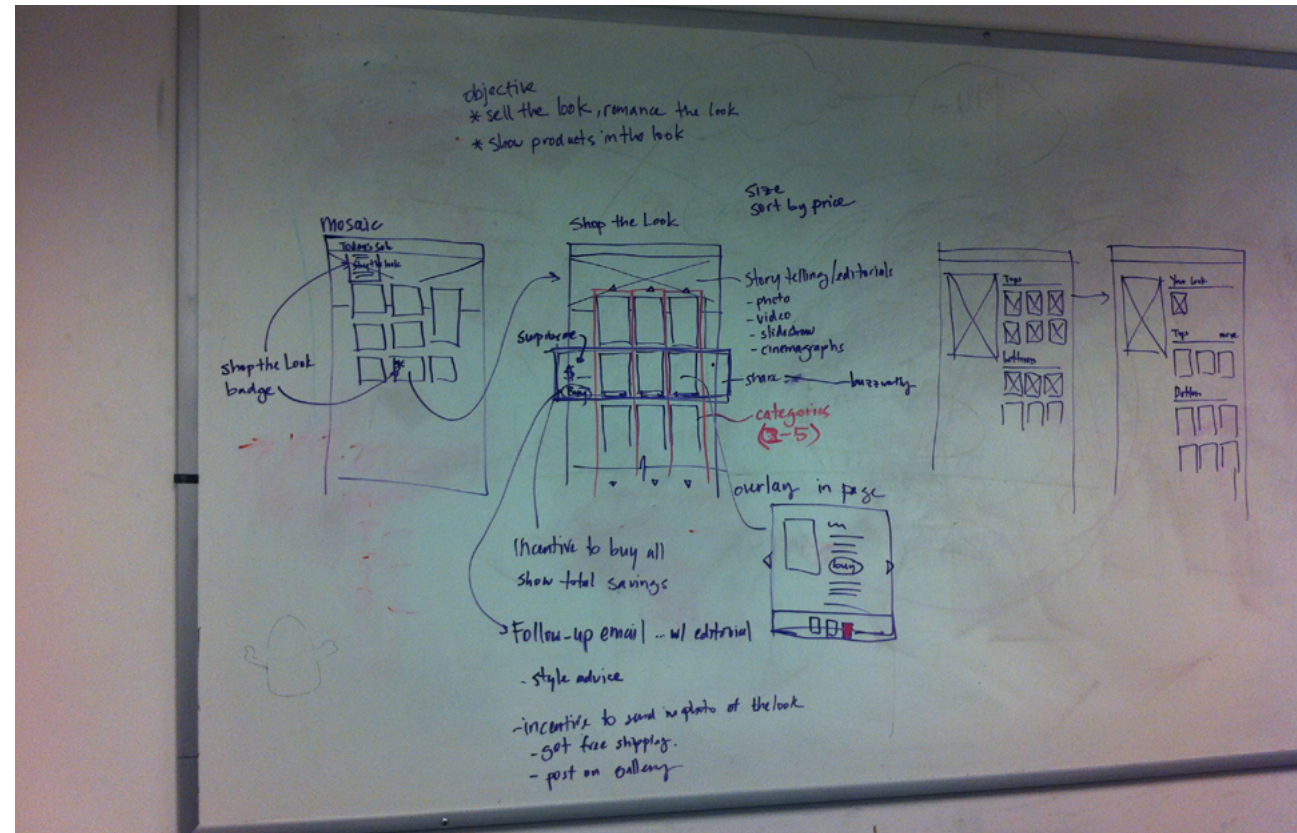 objective
* sell the look, romance the look
* show products in the look
size
sort by price
mosaic
Shop the look
shop the Look
badge
Shop the Look
Story telling/editorials
- photo
- video
- slideshow
- cinemagraphs
surprise me
$
Buy
share
buzzworthy
categories
-5)
overlay in page
buy
Incentive to buy all
show total savings
Follow-up email ... w/ editorial
- style advice
- incentive to send in photo of the look
- get free shipping.
- post on gallery
Tops
bottoms
Your Look
Tops more
Bottom